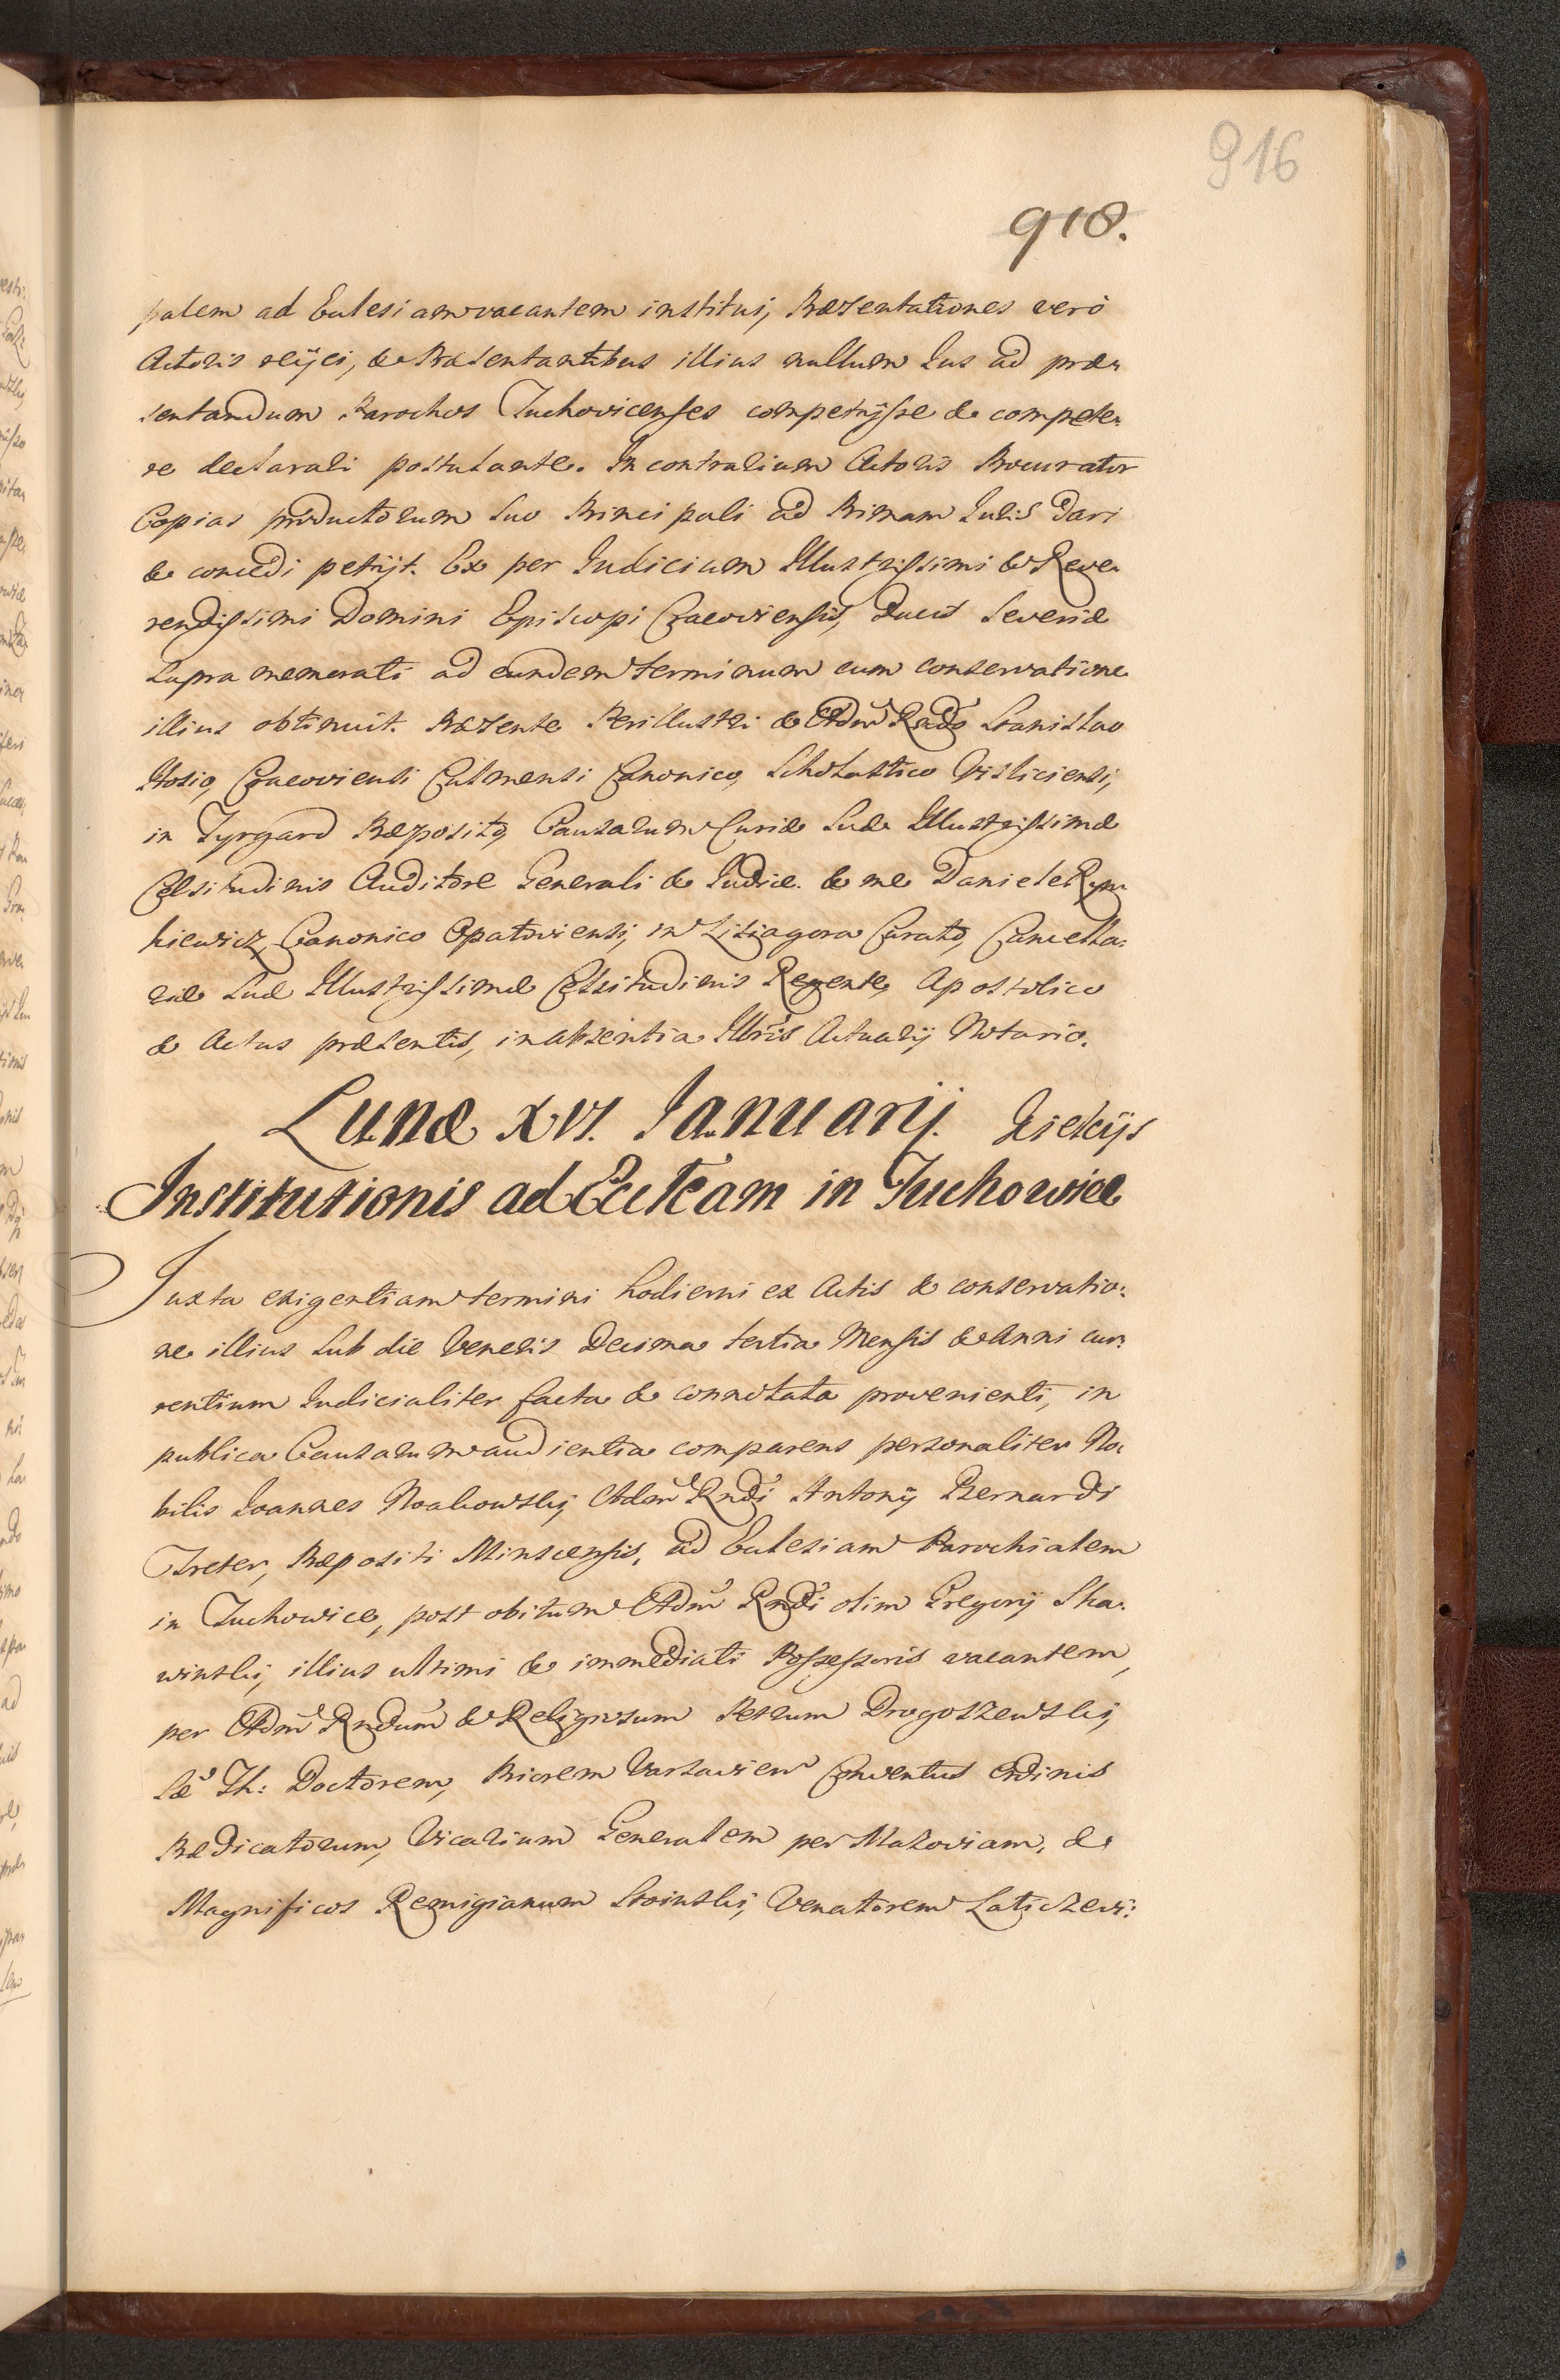 916
918.
palem ad Ecclesiam vacantem institui, Præsentationes verò
Actoris reijci, & Præsentantibus illius nullum Ius ad præ„
sentandum Parochos Tuchovicenses competijsse & compete„
re declarari postulante. In contrarium Actoris Procurator
Copias productorum suo Principali ad Primam Iuris dari
& concedi petijt. Et per Iudicium Illustrissimi & Reve„
rendissimi Domini Episcopi Cracoviensis, Ducis Severiæ
supra memorati ad eundem terminum cum conservatione
illius obtinuit. Præsente Perillustri & Adm̃ Rndo Stanislao
Hosio, Cracoviensi Culmensi Canonico, Scholastico Visliciensi,
in Tyrgard Præposito, Causarum Curiæ suæ Illustrissimæ
Celsitudinis Auditore Generali & Iudice. & me Daniele Rym„
kiewicz Canonico Opatoviensi, in Lisiagora Curato, Cancella:
riæ suæ Illustrissimæ Celsitudinis Regente, Apostolico
& Actus præsentis, in absentia Illris Actuarij Notario.
Lunæ XVI. Ianuarij. Kielcijs
Institutionis ad Ecclẽam in Tuchowicz
Iuxta exigentiam termini hodierni ex Actis & conservatio:
ne illius sub die Veneris Decima tertia Mensis & Anni cur:
rentium Iudicialiter facta & connotata provenienti, in
publica Causarum audientia comparens personaliter No:
bilis Ioannes Noakowski, Adm̃ Rndi Antonij Bernardi
Treter, Præpositi Minscensis, ad Ecclesiam Parochialem
in Tuchowicz, post obitum Adm̃ Rndi olim Gregorij Ska„
winski, illius ultimi & immediati Possessoris vacantem,
per Adm̃ Rndum & Religiosum Petrum Drogoszewski,
Sæ Th: Doctorem, Priorem Varsavien Conventus Ordinis
Prædicatorum, Vicarium Generalem per Mazoviam, &
Magnificos Remigianum Stoinski, Venatorem Laticzevi: